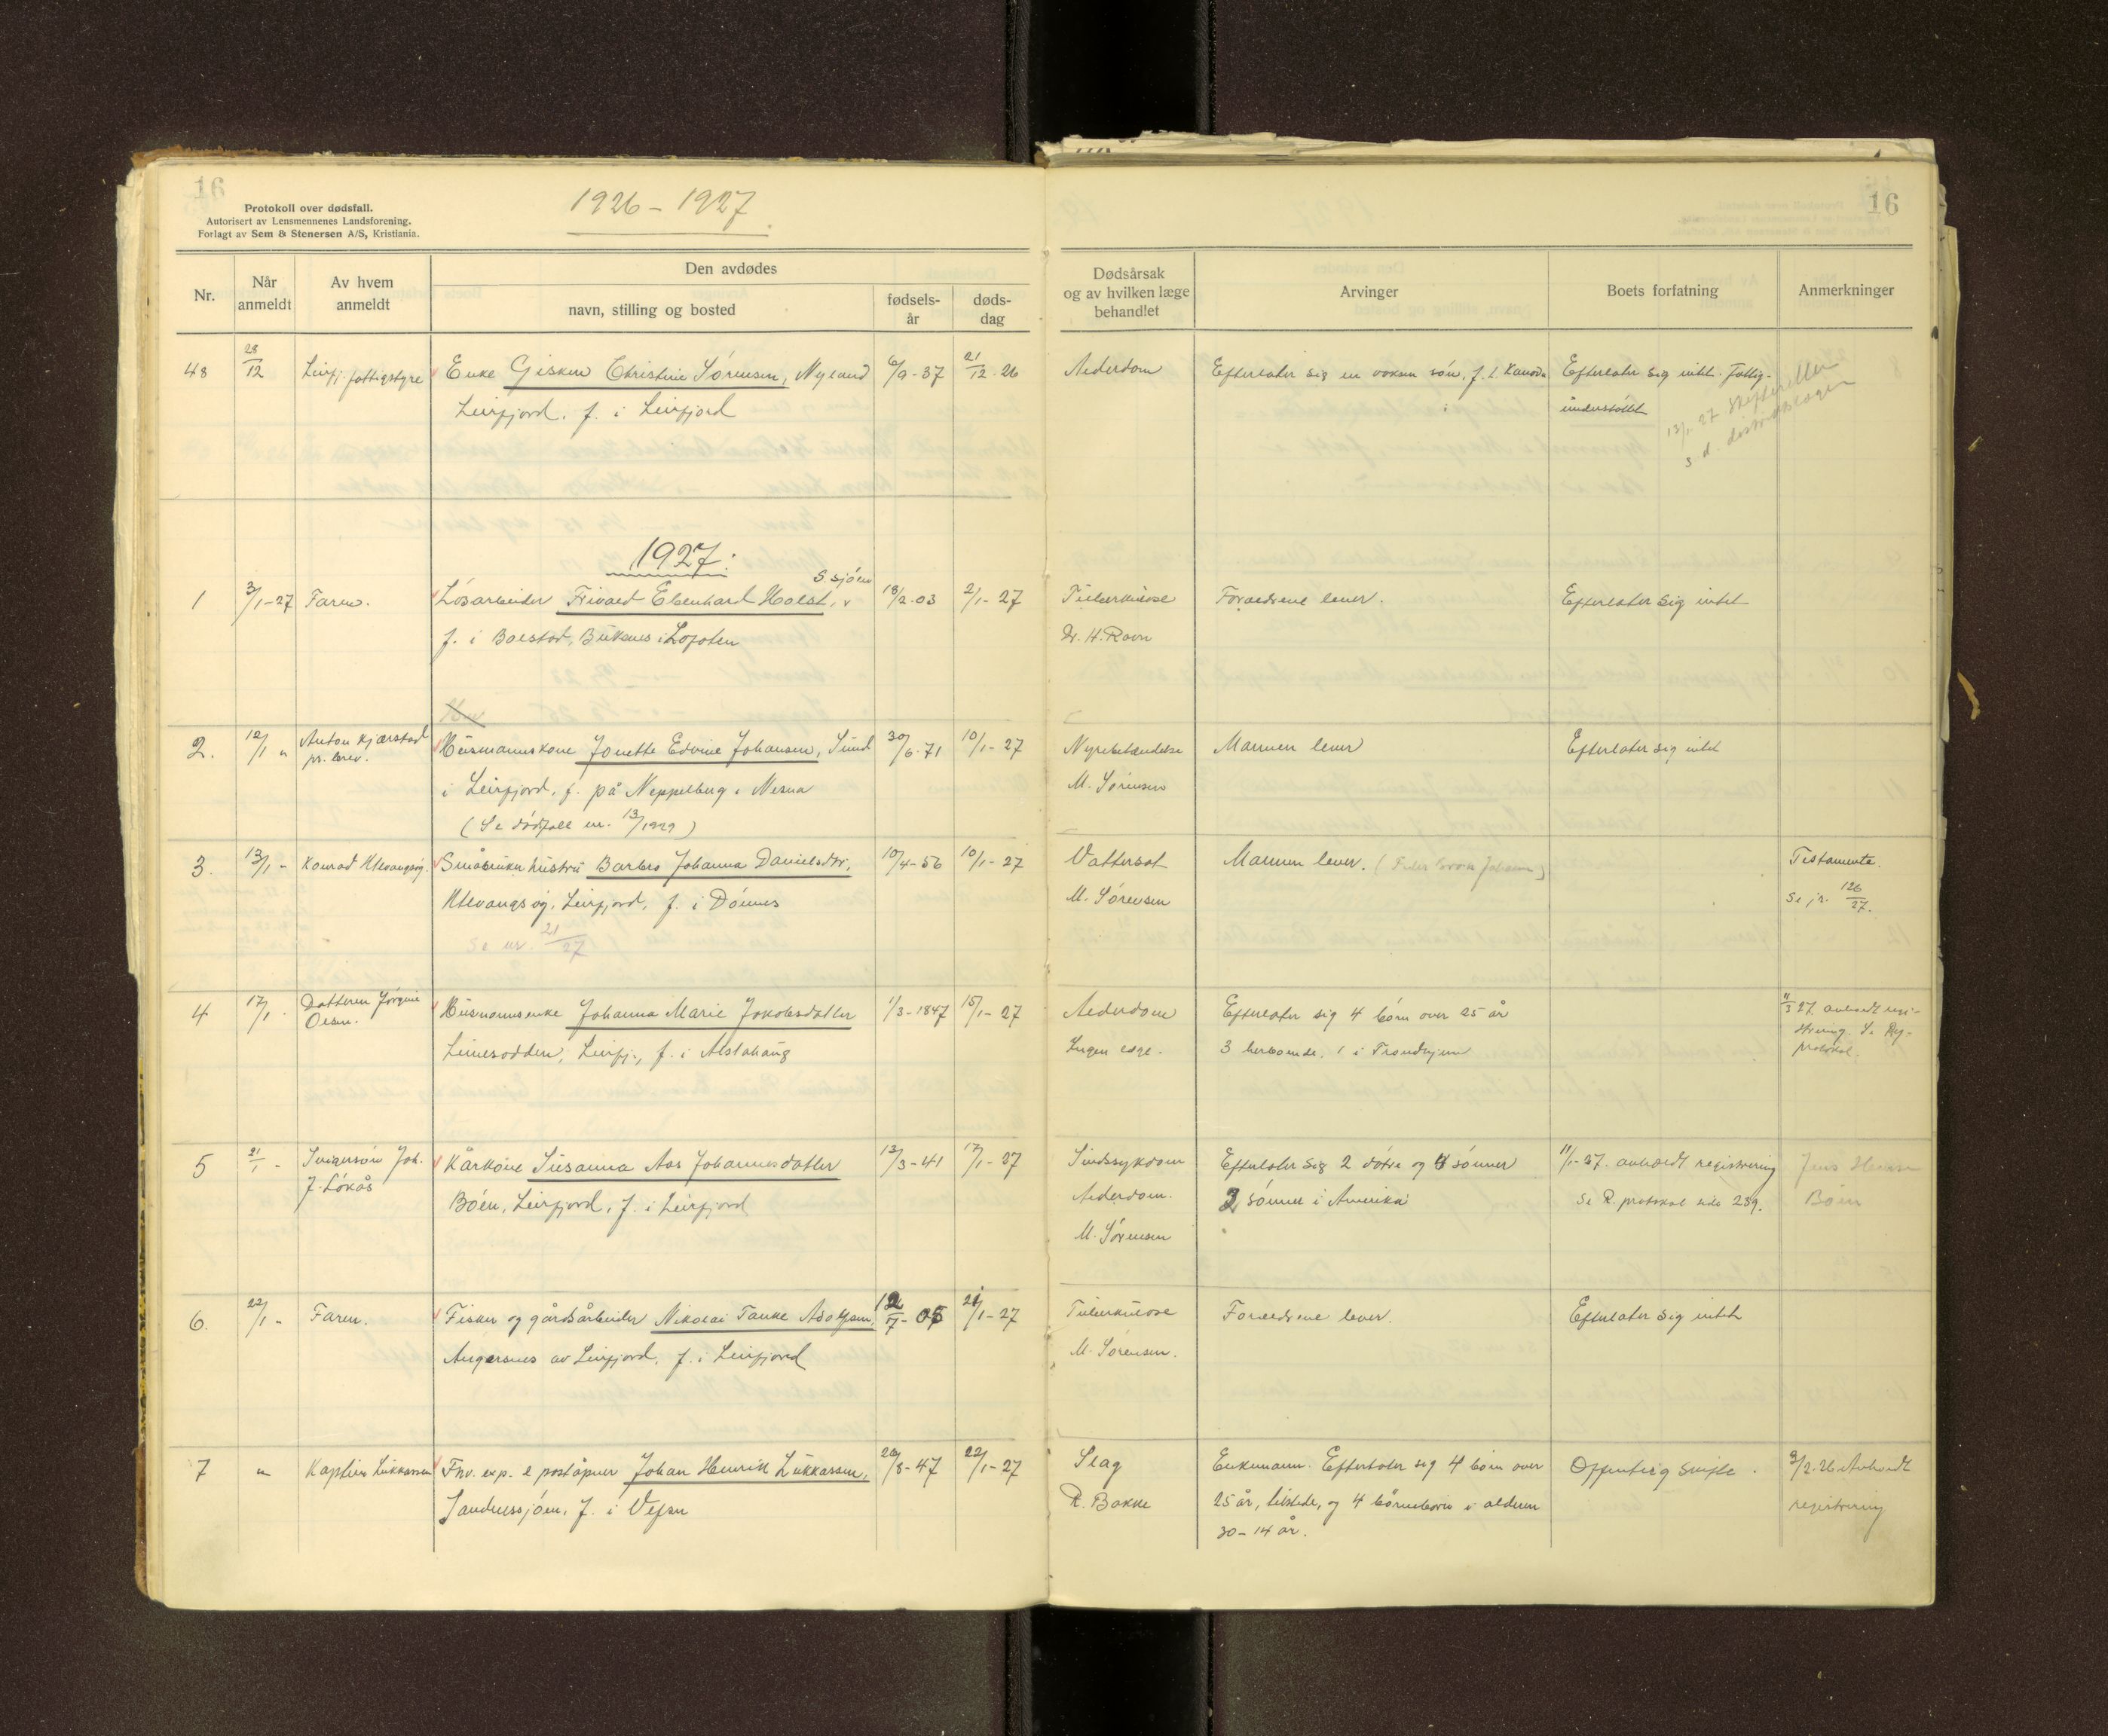 16
Protokoll over dødsfall.
Autorisert av Lensmennenes Landsforening.
Forlagt av Sem & Stenersen A/S, Kristiania.
1926 - 1927.
16
Nr.
Når anmeldt
Av hvem anmeldt
Den avdødes
navn, stilling og bosted
fødsels-år
døds-dag
Dødsårsak og av hvilken læge behandlet
Arvinger
Boets forfatning
Anmerkninger
48 28/12 Leirfj. fattigstyre Enke Gisken Christine Sørensen, Nylund 6/9-37 21/12-26 Alderdom Efterlater sig en voksen søn, f. t. Kanada Efterlater sig intet. Fattig-
Leirfjord, f. i Leirfjord understøttet
1927:
S.sjøen
1 3/1-27 Faren. Løsarbeider Trivald Edenhard Holst, 18/2-03 2/1-27 Tuberkulose Forældrene lever. Efterlater sig intet
f. i Bolstad, Buksnes i Lofoten Dr. H. Ravn
2. 12/1 " Anton Kjærstad Husmannskone Jonette Edvine Johansen, Sund 30/6-71 10/1-27 Nyrebetændelse Mannen lever Efterlater sig intet
pr. brev. i Leirfjord, f. på Neppelberg i Nesna M. Sørensen
(Se dødsfall nr. 13/1929)
3. 13/1 - Konrad Ulvangsøy. Småbrukerhustru Barbro Johanna Danielsdtr, 10/4-56 10/1-27 Vattersot Mannen lever. Testamente.
Ulvangsøy, Leirfjord, f. i Dønnes M. Sørensen Se jr. 126/27.
Se nr. 21/27
4 17/1 - Datteren Jørgine Husmannsenke Johanna Marie Jakobsdatter 1/3-1847 15/1-27 Alderdom Efterlater sig 4 børn over 25 år 11/3 27. avholdt regi-
Olsen. Leinesodden, Leirfj., f. i Alstahaug Ingen læge. 3 herboende, 1 i Trondhjem strering. Se Reg-
protokol.
5 21/1 - Svigersøn Joh. Kårkone Susanna Aas Johannesdatter 13/3-41 17/1-27 Sindssykdom Efterlater sig 2 døtre og 4 sønner 11/1-27. avholdt registrering Jens Hansen
J. Løkås Bøen, Leirfjord, f. i Leirfjord Alderdom. 2 sønner i Amerika Se R. protokol side 239. Bøen
M. Sørensen
6. 22/1 - Faren. Fisker og gårdsarbeider Nikolai Tanke Adolfsen, 12/7-05 21/1-27 Tuberkulose Forældrene lever. Efterlater sig intet
Angersnes av Leirfjord, f. i Leirfjord M. Sørensen.
7 " Kaptein Lukkassen Fhv. exp. & poståpner Johan Henrik Lukkassen, 26/8-47 22/1-27 Slag Enkemann. Efterlater sig 4 børn over Offentlig skifte. 9/2.26 Avholdt
Sandnessjøen, f. i Vefsn R. Bakke 25 år, tilstede, og 4 børnebørn i alderen registrering
30-14 år.